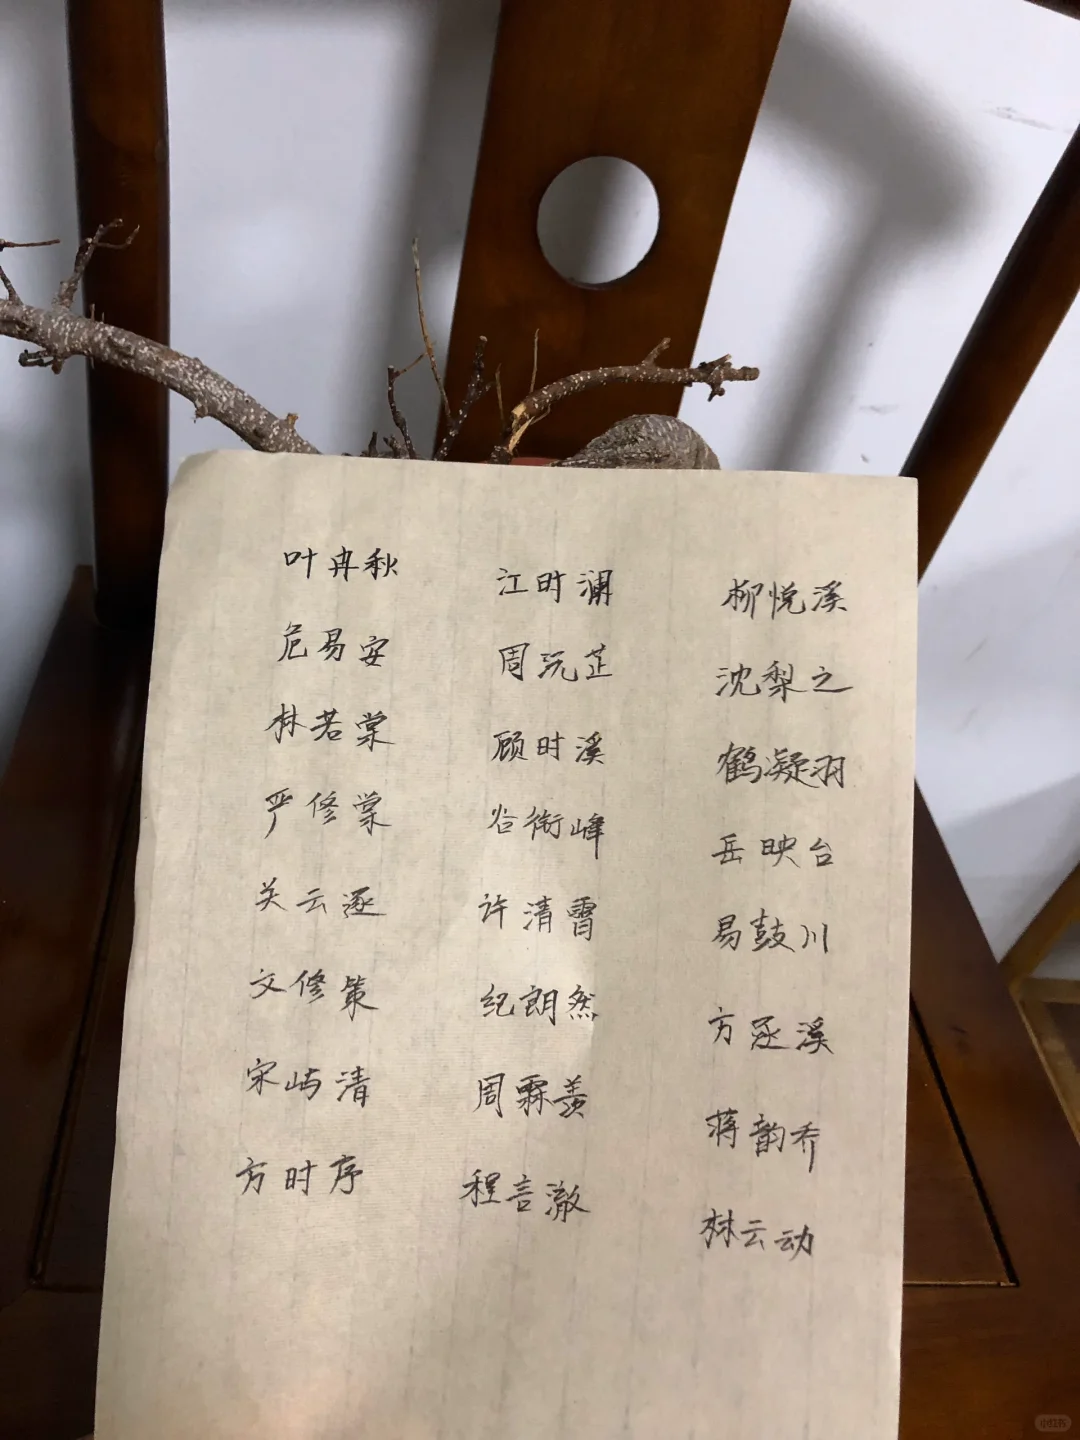 叶冉秋
危易安
林若棠
严修棠
关云逐
文修策
宋屿清
方时序
江时澜
周沅芷
顾时溪
谷衔峰
许清霄
纪朗然
周霖羡
程言澈
柳悦溪
沈梨之
鹤凝羽
岳映台
易鼓川
方丞溪
蒋韵乔
林云动
小红书